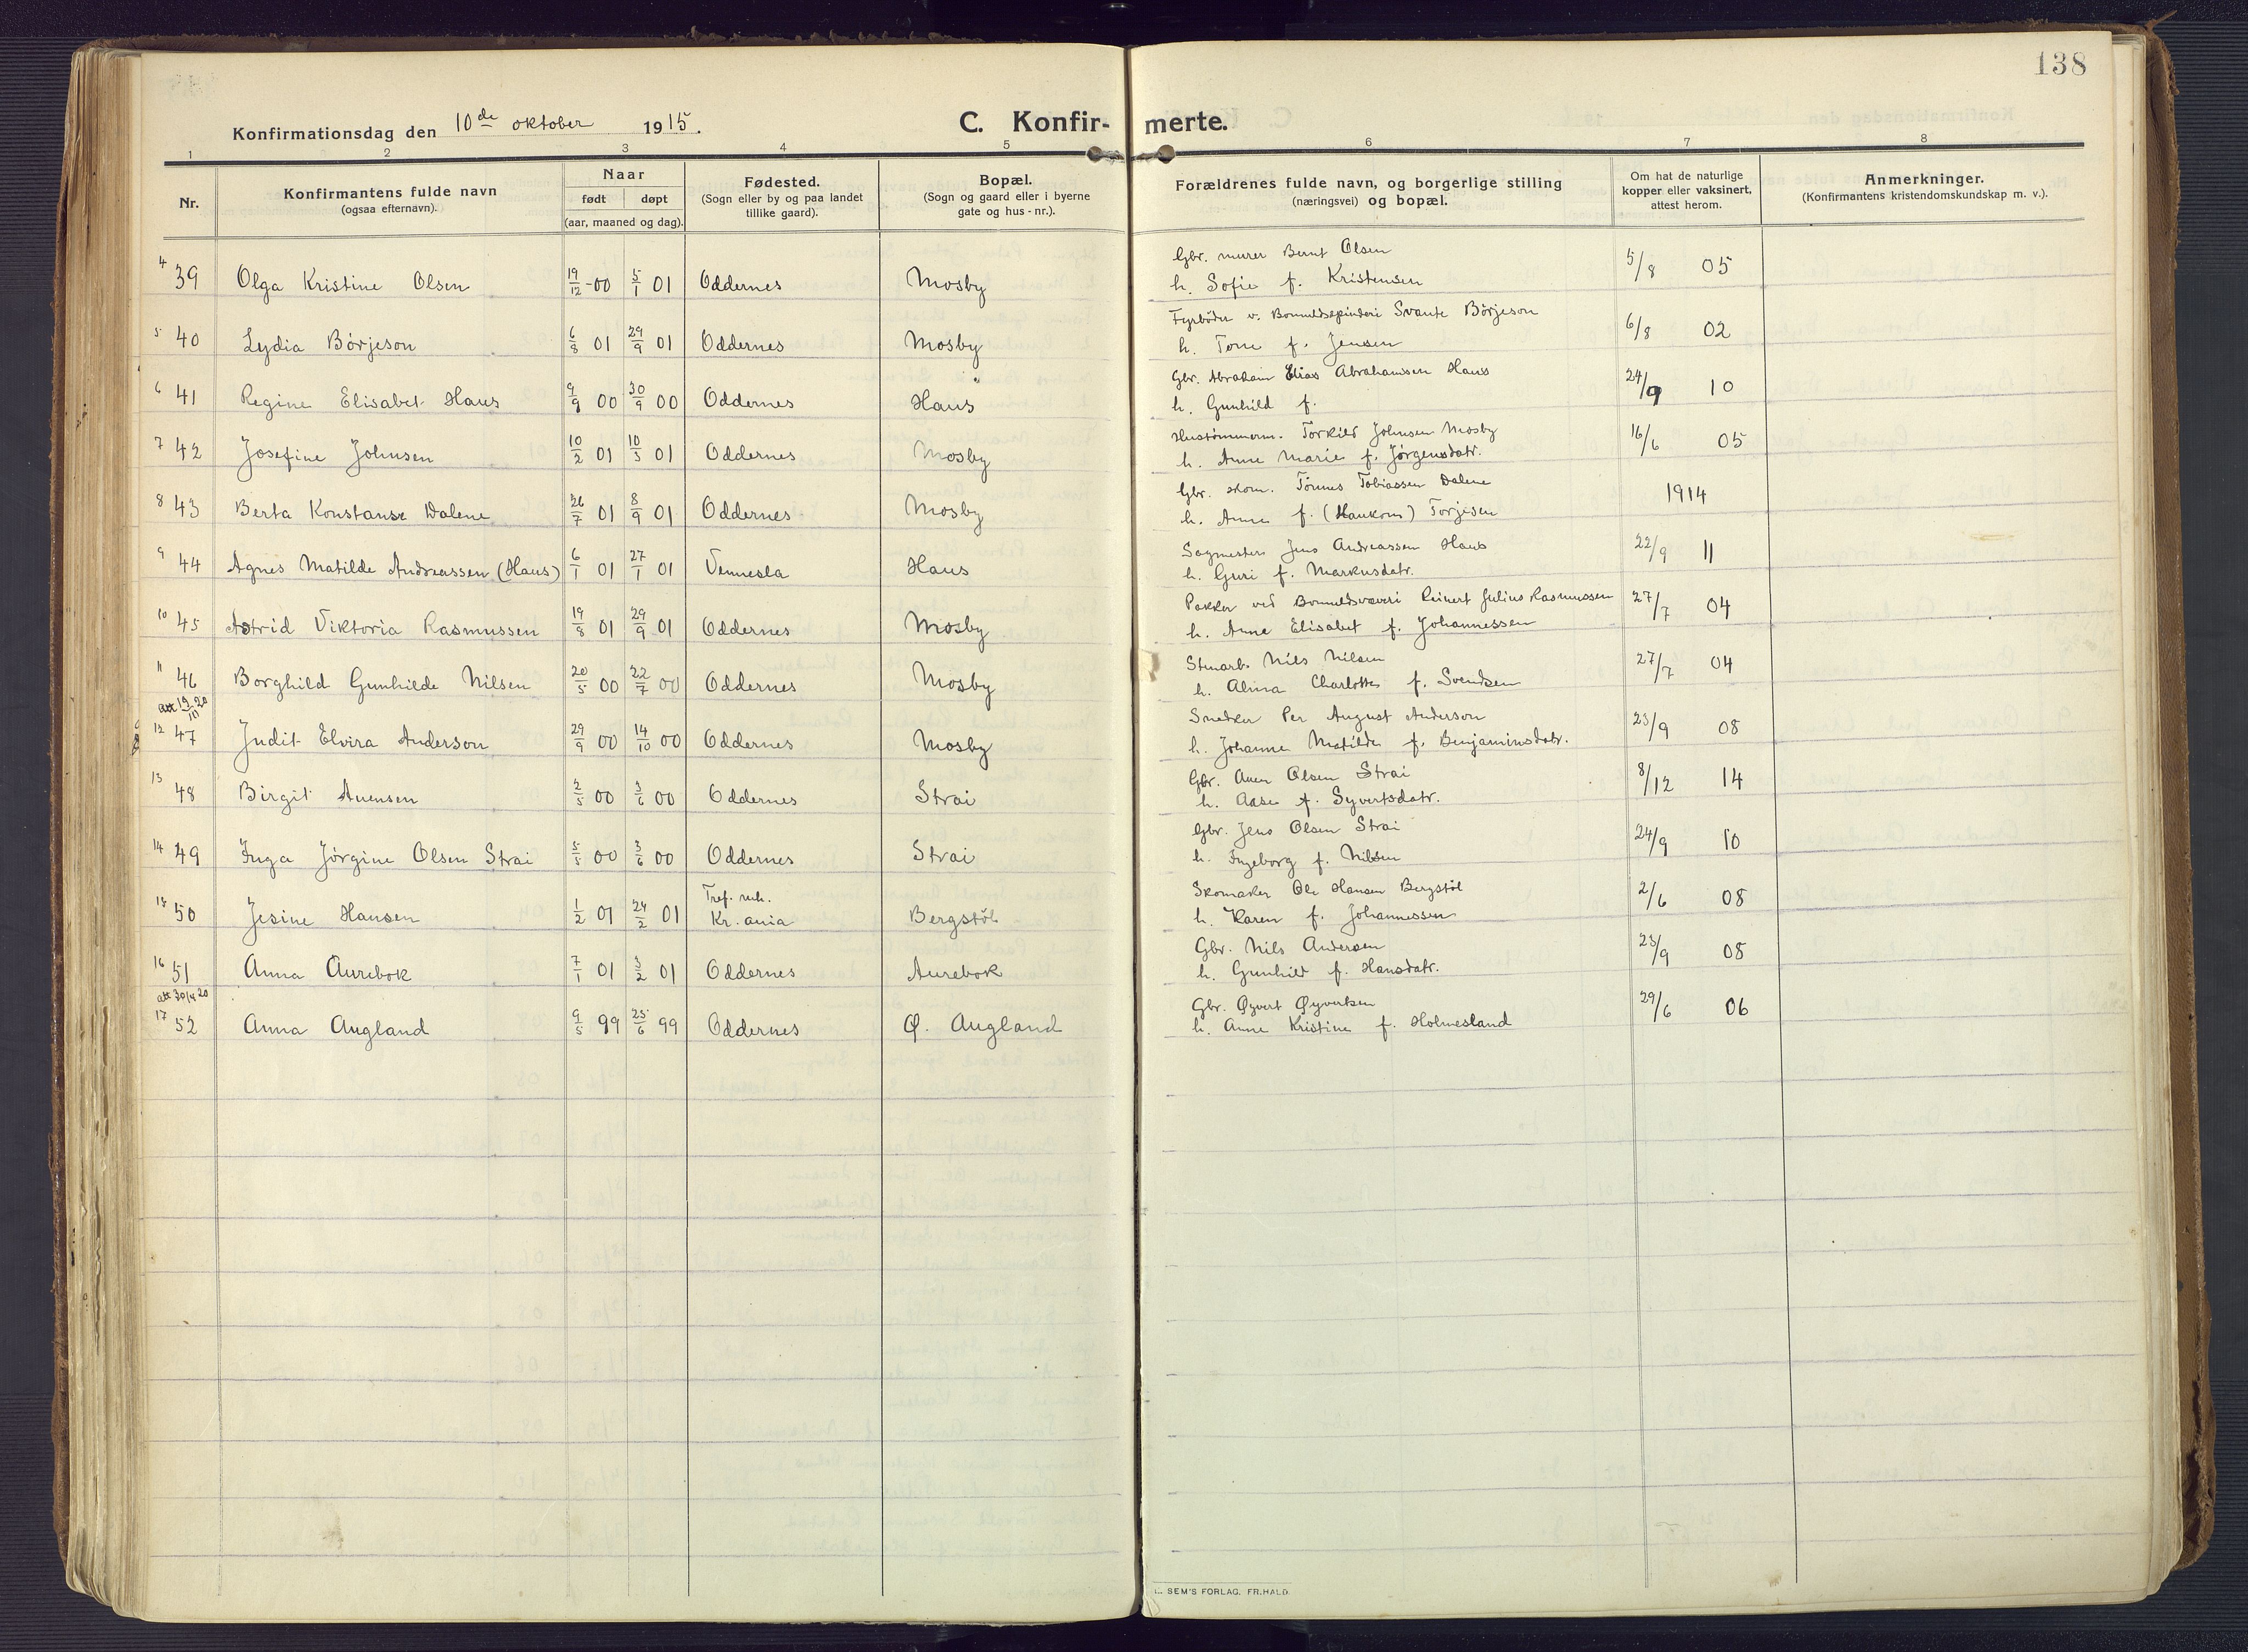 138
Konfirmationsdag den 10de oktober 1915.
C. Konfir- merte.
1 2 3 4 5 6 7 8
Nr.
Konfirmantens fulde navn
(ogsaa efternavn).
Naar
født døpt
(aar, maaned og dag).
Fødested.
(Sogn eller by og paa landet
tillike gaard).
Bopæl.
(Sogn og gaard eller i byerne
gate og hus-nr.).
Forældrenes fulde navn, og borgerlige stilling
(næringsvei) og bopæl.
Om hat de naturlige
kopper eller vaksinert,
attest herom.
Anmerkninger.
(Konfirmantens kristendomskundskap m. v.).
4 39 Olga Kristine Olsen 19/12-00 5/1 01 Oddernes Mosby Gbr. murer Bernt Olsen 5/8 05
h. Sofie f. Kristensen
5 40 Lydia Börjeson 6/8 01 29/9 01 Oddernes Mosby Fyrböder v. Bomuldsspinderi Svante Börjeson 6/8 02
h. Tone f. Jensen
6 41 Regine Elisabet Haus 9/9 00 30/9 00 Oddernes Haus Gbr. Abraham Elias Abrahamsen Haus 24/9 10
h. Gunhild f.
7 42 Josefine Johnsen 10/2 01 10/3 01 Oddernes Mosby Hustömmerm. Torkild Johnsen Mosby 16/6 05
h. Anne Marie f. Jörgensdatr.
8 43 Berta Konstanse Dalene 26/7 01 8/9 01 Oddernes Mosby Gbr. skom. Tönnes Tobiassen Dalene 1914
h. Anne f. (Haukom) Torjesen
9 44 Agnes Matilde Andreassen (Haus) 6/1 01 27/1 01 Vennesla Haus Sagmester Jens Andreassen Haus 22/9 11
h. Guri f. Markusdatr.
10 45 Astrid Viktoria Rasmussen 19/8 01 29/9 01 Oddernes Mosby Pakker ved Bomuldsvæveri Reinert Julius Rasmussen 27/7 04
h. Anne Elisabet f. Johannessen
11 46 Borghild Gunhilde Nilsen 20/5 00 22/7 00 Oddernes Mosby Stuarb. Nils Nilsen 27/7 04
h. Alma Charlotte f. Svendsen
12 47 Judit Elvira Anderson 29/9 00 14/10 00 Oddernes Mosby Snedker Per August Anderson 23/9 08
h. Johanne Matilde f. Benjaminsdatr.
13 48 Birgit Auensen 2/5 00 3/6 00 Oddernes Strai Gbr. Auen Olsen Strai 8/12 14
h. Aase f. Syvertsdatr.
14 49 Inga Jörgine Olsen Strai 5/5 00 3/6 00 Oddernes Strai Gbr. Jens Olsen Strai 24/9 10
h. Ingeborg f. Nilsen
15 50 Jesine Hansen 1/2 01 24/2 01 Kr.ania Bergstöl Skomaker Ole Hansen Bergstöl 2/6 08
h. Karen f. Johannessen
16 51 Anna Aurebok 7/1 01 3/2 01 Oddernes Aurebok Gbr. Nils Andersen 23/9 08
h. Gunhild f. Hansdatr.
att 30/4 20
17 52 Anna Augland 9/5 99 25/6 99 Oddernes Ø. Augland Gbr. Øyvert Øyvertsen 29/6 06
h. Anne Kristine f. Holmesland
SEM'S FORLAG. FR.HALD